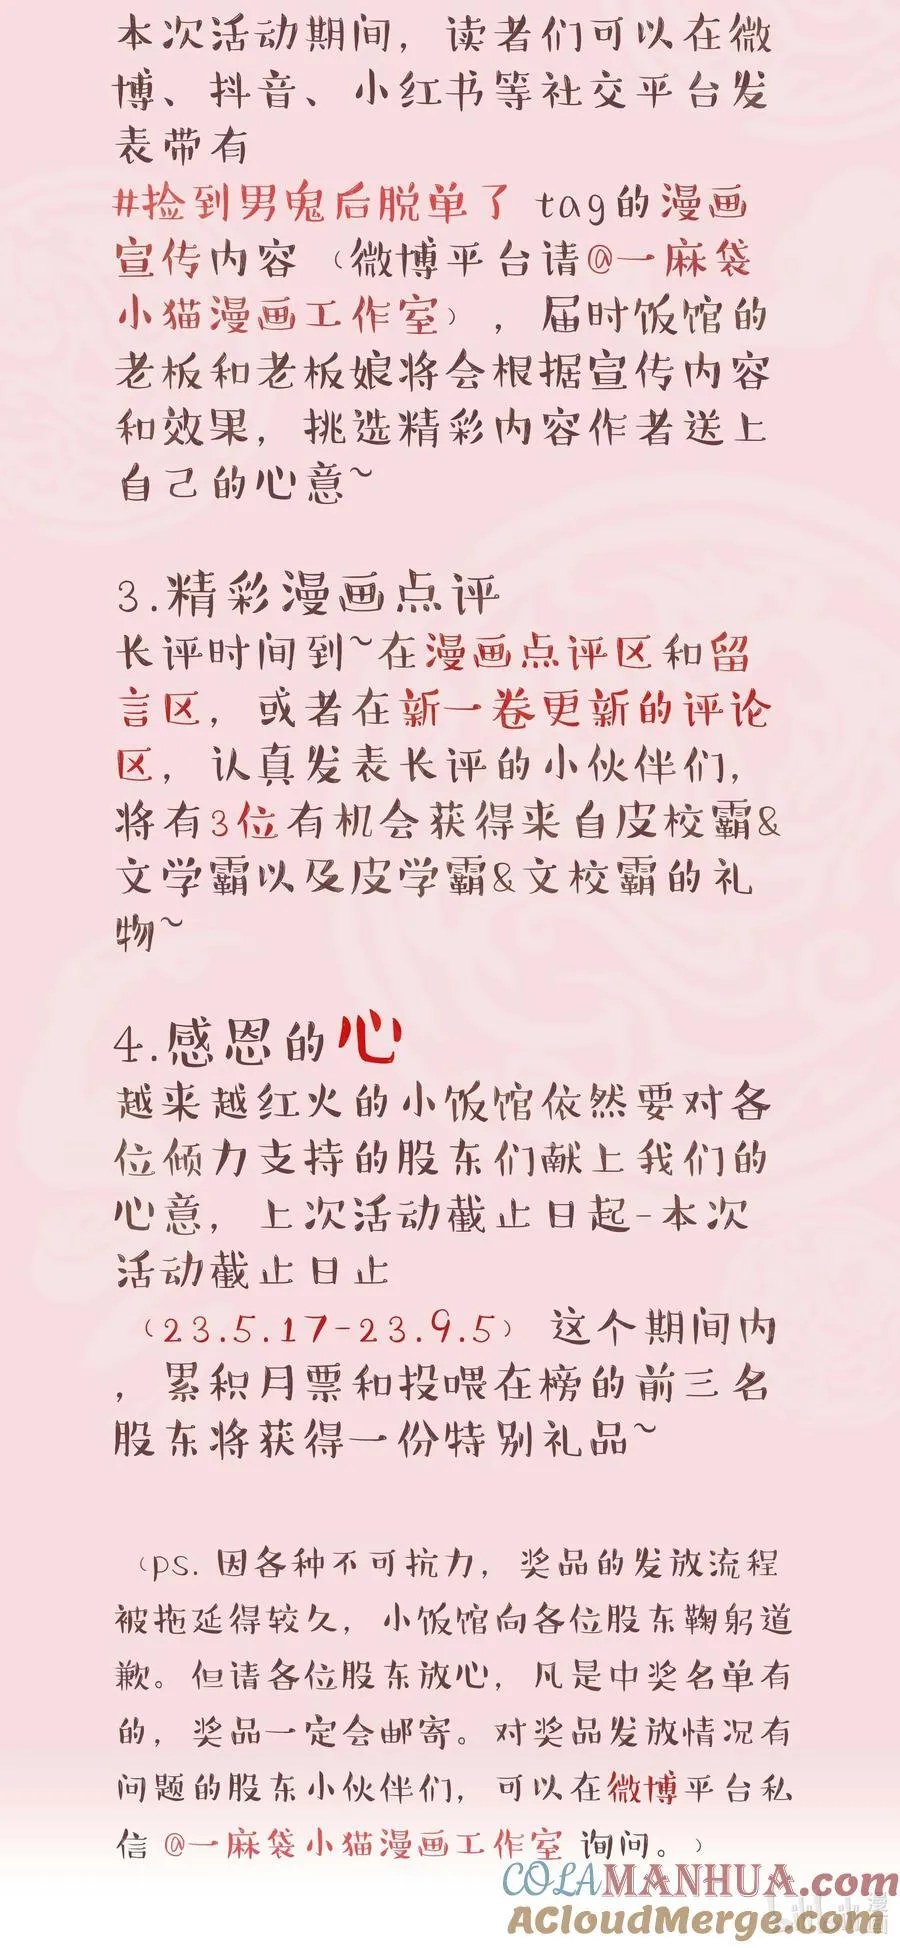 本次活动期间，读者们可以在微
博、抖音、小红书等社交平台发
表带有
#捡到男鬼后脱单了 tag的漫画
宣传内容（微博平台请@一麻袋
小猫漫画工作室），届时饭馆的
老板和老板娘将会根据宣传内容
和效果，挑选精彩内容作者送上
自己的心意~
3.精彩漫画点评
长评时间到~在漫画点评区和留
言区，或者在新一卷更新的评论
区，认真发表长评的小伙伴们，
将有3位有机会获得来自皮校霸&
文学霸以及皮学霸&文校霸的礼
物~
4.感恩的心
越来越红火的小饭馆依然要对各
位倾力支持的股东们献上我们的
心意，上次活动截止日起-本次
活动截止日止
（23.5.17-23.9.5）这个期间内
，累积月票和投喂在榜的前三名
股东将获得一份特别礼品~
（ps.因各种不可抗力，奖品的发放流程
被拖延得较久，小饭馆向各位股东鞠躬道
歉。但请各位股东放心，凡是中奖名单有
的，奖品一定会邮寄。对奖品发放情况有
问题的股东小伙伴们，可以在微博平台私
信 @一麻袋小猫漫画工作室 询问。）
COLAMANHUA.com
AcloudMerge.com